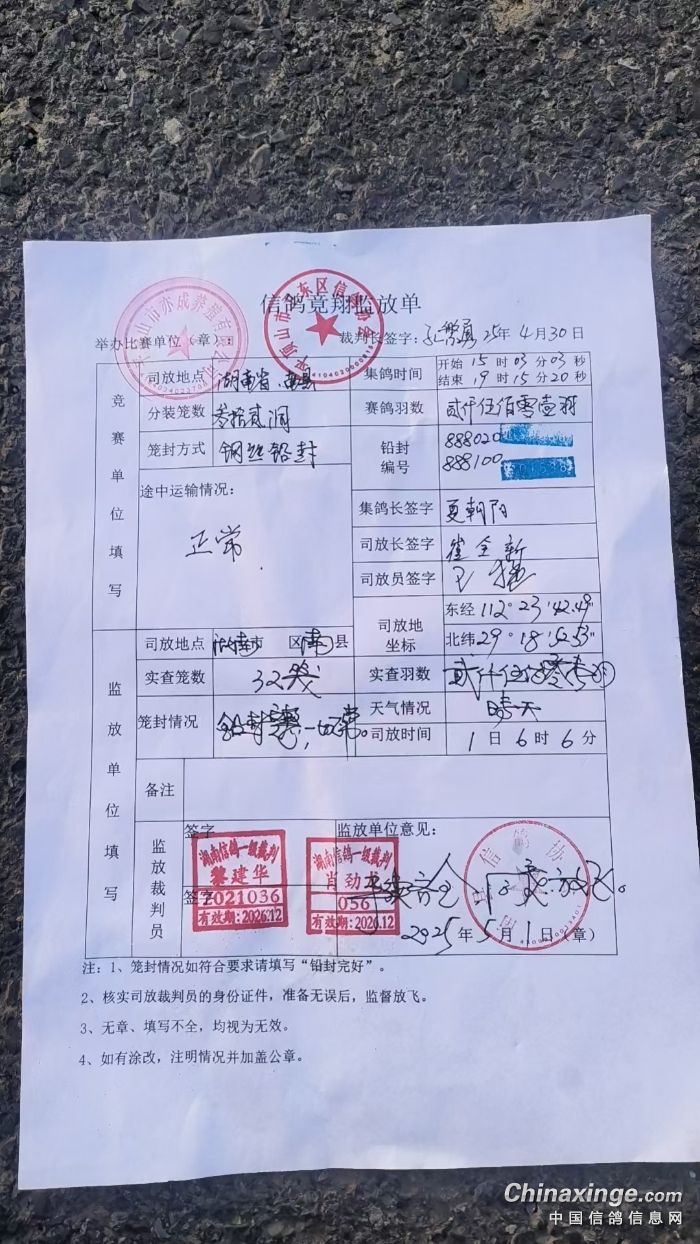 信鸽竞翔监放单
举办比赛单位（章）： 裁判长签字： 25年4月30日
竞赛单位填写
司放地点 湖南省.南县 集鸽时间 开始 15时03分03秒
结束 19时15分20秒
分装笼数 叁拾贰洞 赛鸽羽数 贰仟伍佰零壹羽
笼封方式 钢丝铅封 铅封编号 888020
888100
途中运输情况：
正常
集鸽长签字 夏朝阳
司放长签字 崔全新
司放员签字 王
司放地坐标 东经 112°23'42.49"
北纬 29°18'52.53"
监放单位填写
司放地点 市 区 南县
实查笼数 32笼 实查羽数 贰仟伍佰零壹羽
笼封情况 天气情况 晴天
司放时间 1日6时6分
备注
监放裁判员 签字 监放单位意见：
湖南信鸽一级裁判
黎建华
2021036
有效期:2026.12
湖南信鸽一级裁判
肖劲
056
有效期:2026.12
签字
2025年5月1日（章）
注：1、笼封情况如符合要求请填写“铅封完好”。
2、核实司放裁判员的身份证件，准备无误后，监督放飞。
3、无章、填写不全，均视为无效。
4、如有涂改，注明情况并加盖公章。
Chinaxinge.com
中国信鸽信息网